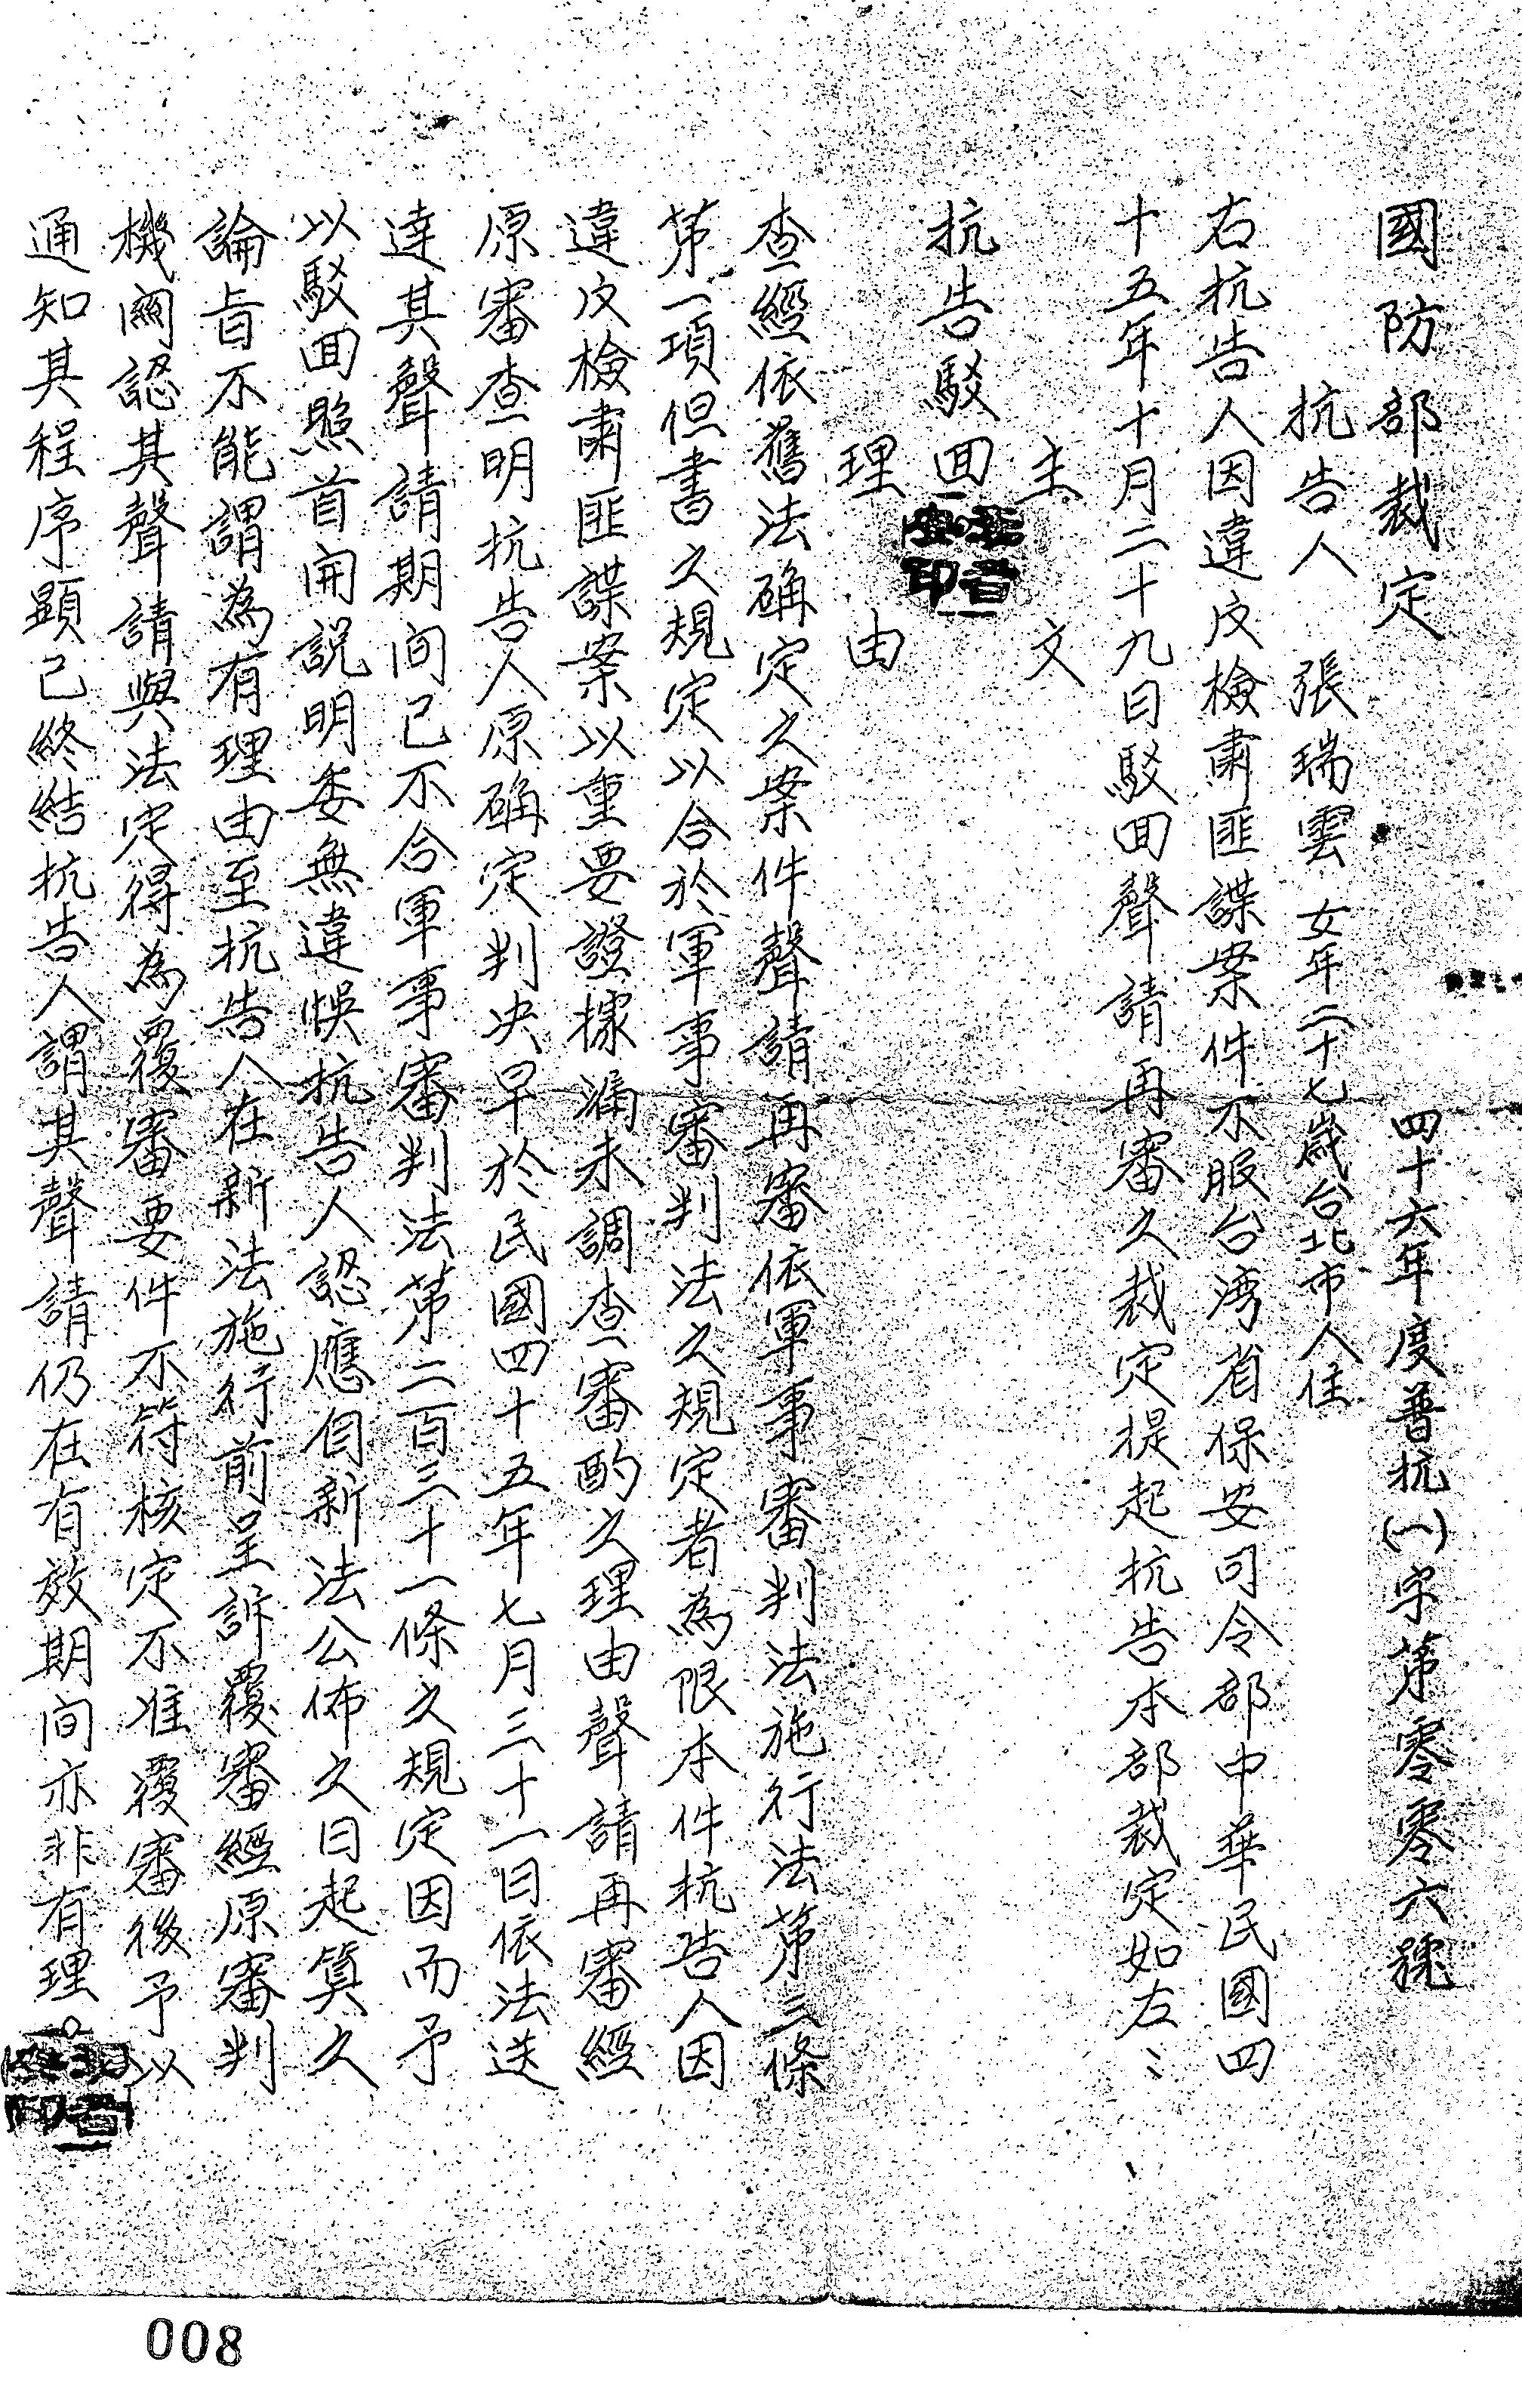 國防部裁定　四十六年度普抗(一)字第零零六號
抗告人　張瑞雲　女年二十七歲台北市人住
右抗告人因違反檢肅匪諜案件不服台湾省保安司令部中華民國四
十五年十月二十九日駁回聲請再審之裁定提起抗告本部裁定如左：
主文
抗告駁回
理由
查經依舊法确定之案件聲請再審依軍事審判法施行法第三條
第一項但書之規定以合於軍事審判法之規定者為限本件抗告人因
違反檢肅匪諜案以重要證據漏未調查審酌之理由聲請再審經
原審查明抗告人原确定判决早於民國四十五年七月三十一日依法送
達其聲請期间已不合軍事審判法第二百三十一條之規定因而予
以駁回照首開説明委無違悞抗告人認應自新法公佈之日起算之
論旨不能謂為有理由至抗告人在新法施行前呈訴覆審經原審判
機關認其聲請與法定得為覆審要件不符核定不准覆審後予以
通知其程序顕已終結抗告人謂其聲請仍在有效期间亦非有理。
008